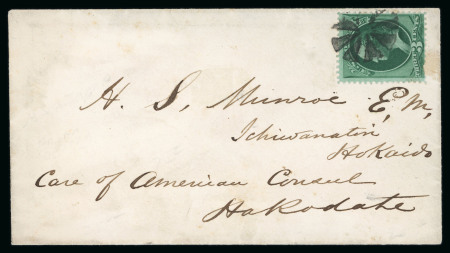 H. S. Munroe E. M.
Ichiwanatin
Hokaido
Care of American Consul
Hakodate